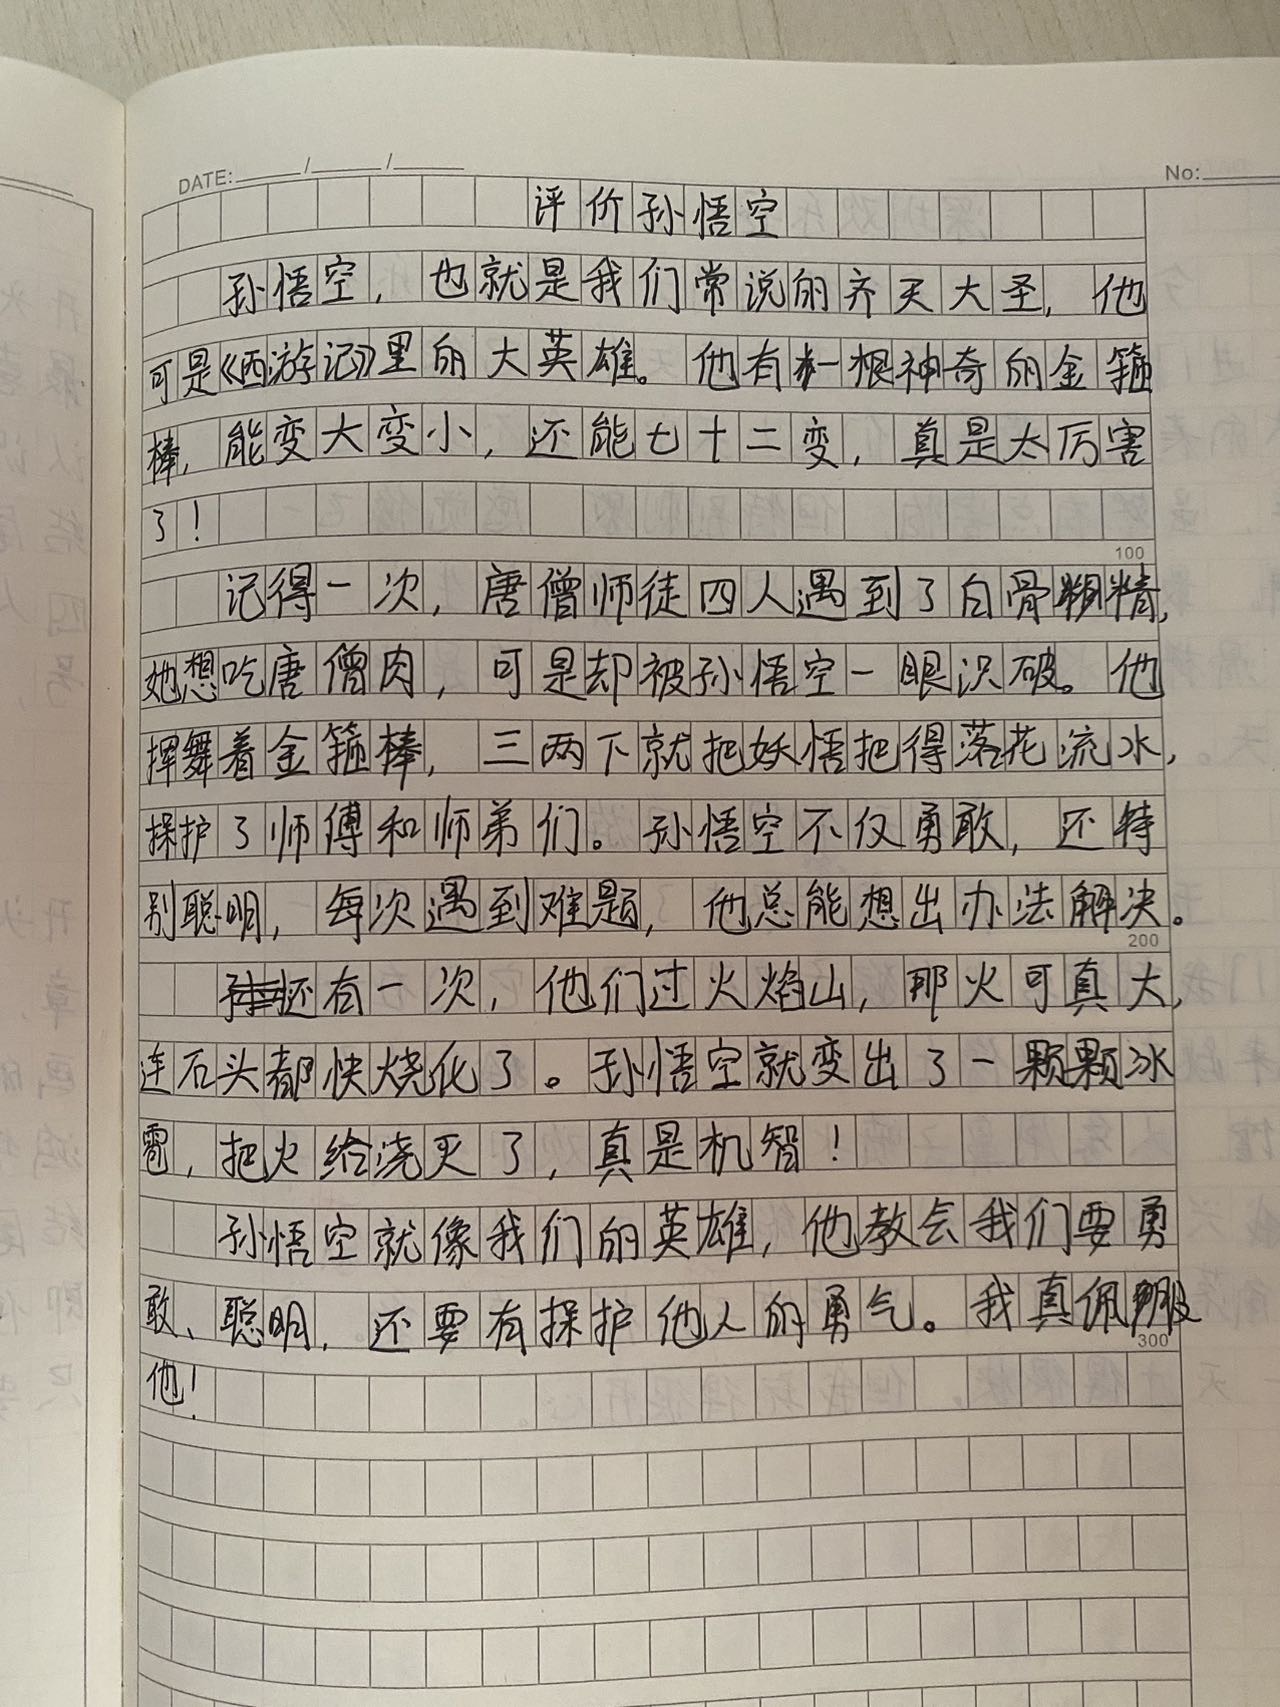 DATE: / /
No:
评价孙悟空
孙悟空，也就是我们常说的齐天大圣，他
可是《西游记》里的大英雄。他有一根神奇的金箍
棒，能变大变小，还能七十二变，真是太厉害
了！
100
记得一次，唐僧师徒四人遇到了白骨精，
她想吃唐僧肉，可是却被孙悟空一眼识破。他
挥舞着金箍棒，三两下就把妖悟把得落花流水，
保护了师傅和师弟们。孙悟空不仅勇敢，还特
别聪明，每次遇到难题，他总能想出办法解决。
200
还有一次，他们过火焰山，那火可真大，
连石头都快烧化了。孙悟空就变出了一颗颗冰
雹，把火给浇灭了，真是机智！
孙悟空就像我们的英雄，他教会我们要勇
敢、聪明，还要有保护他人的勇气。我真佩服
300
他！